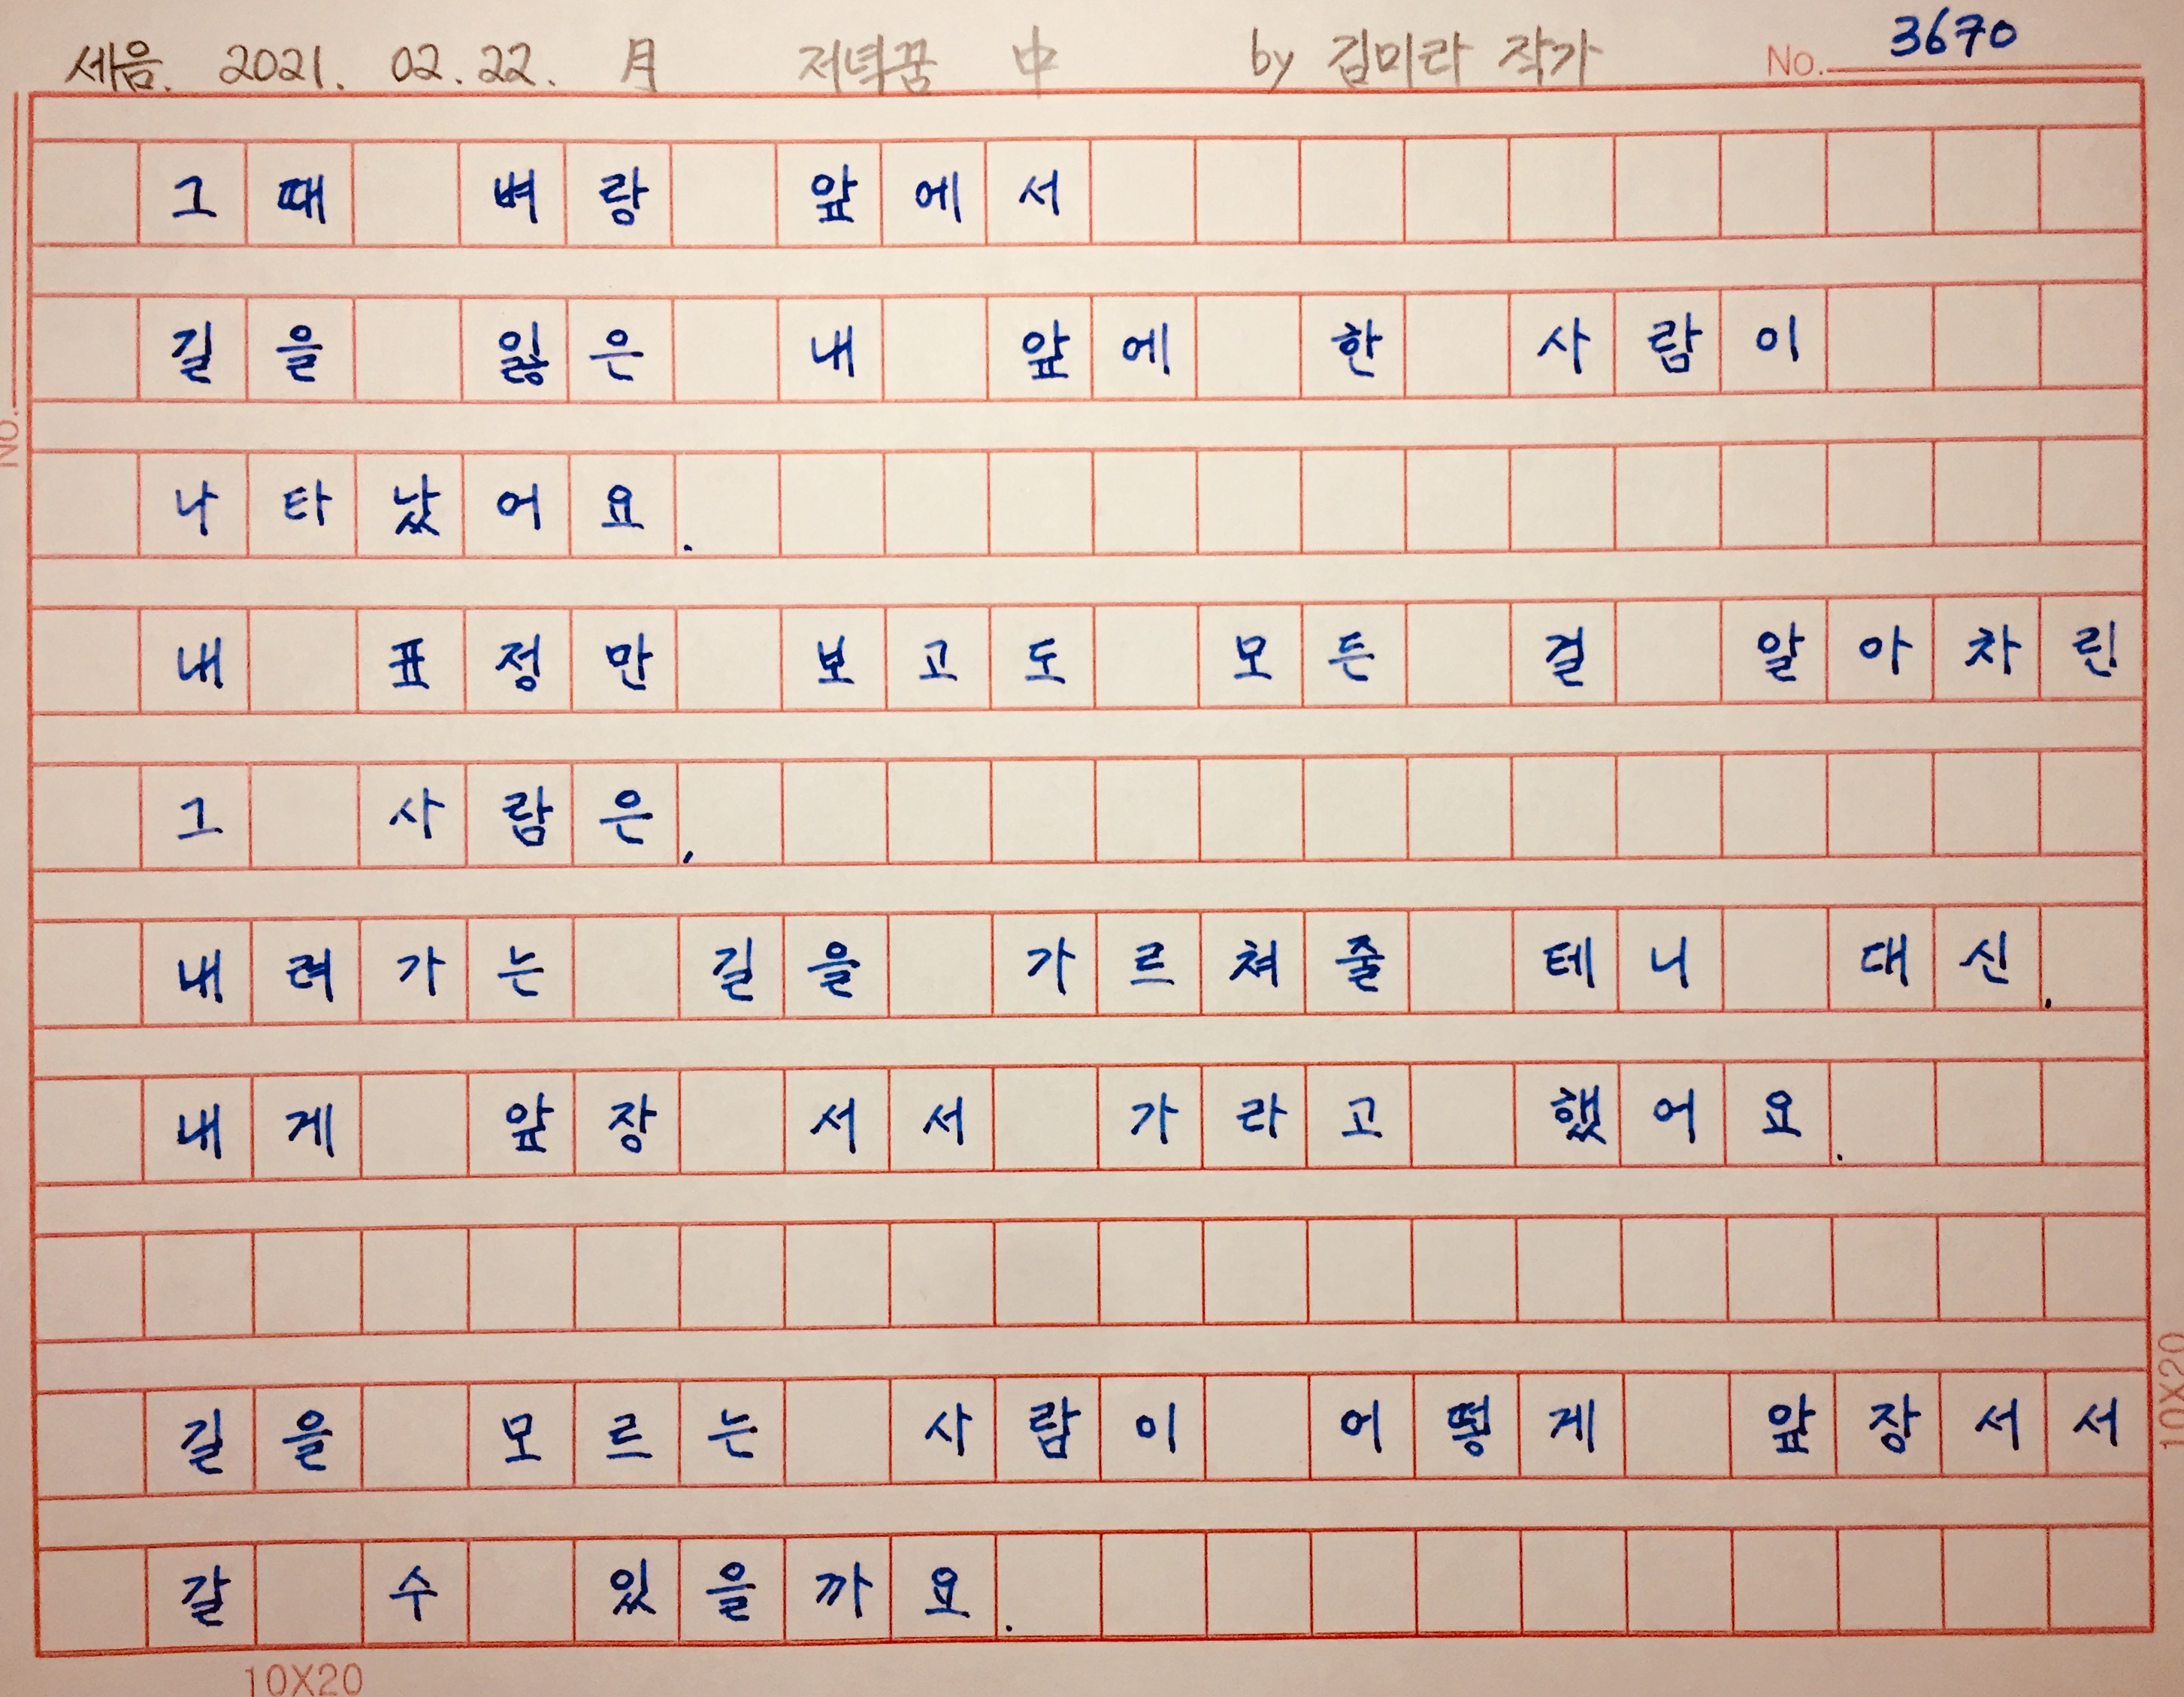 세음. 2021. 02. 22. 月 저녁꿈 中 by 김미라 작가 No. 3670
No.
그때 벼랑 앞에서
길을 잃은 내 앞에 한 사람이
나타났어요.
내 표정만 보고도 모든 걸 알아차린
그 사람은,
내려가는 길을 가르쳐줄 테니 대신,
내게 앞장 서서 가라고 했어요.
길을 모르는 사람이 어떻게 앞장서서
갈 수 있을까요.
10X20
10X20